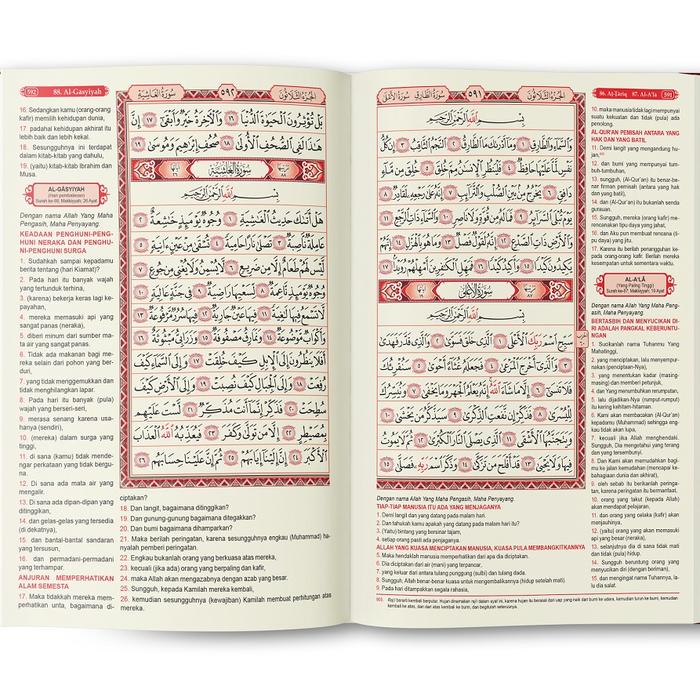 86. Aṭ-Ṭāriq 87. Al-A'lā 591
الجزء الثلاثون سورة الطارق سورة الأعلى ٥٩١
بِسْمِ اللّٰهِ الرَّحْمٰنِ الرَّحِيْمِ
وَالسَّمَاۤءِ وَالطَّارِقِۙ ١ وَمَآ اَدْرٰىكَ مَا الطَّارِقُۙ ٢ النَّجْمُ الثَّاقِبُۙ ٣ اِنْ كُلُّ
نَفْسٍ لَّمَّا عَلَيْهَا حَافِظٌۗ ٤ فَلْيَنْظُرِ الْاِنْسَانُ مِمَّ خُلِقَ ٥ خُلِقَ مِنْ مَّاۤءٍ
دَافِقٍۙ ٦ يَّخْرُجُ مِنْۢ بَيْنِ الصُّلْبِ وَالتَّرَاۤىِٕبِۗ ٧ اِنَّهٗ عَلٰى رَجْعِهٖ لَقَادِرٌۗ ٨
يَوْمَ تُبْلَى السَّرَاۤىِٕرُۙ ٩ فَمَا لَهٗ مِنْ قُوَّةٍ وَّلَا نَاصِرٍۗ ١٠ وَالسَّمَاۤءِ ذَاتِ الرَّجْعِۙ ١١
وَالْاَرْضِ ذَاتِ الصَّدْعِۙ ١٢ اِنَّهٗ لَقَوْلٌ فَصْلٌۙ ١٣ وَّمَا هُوَ بِالْهَزْلِۗ ١٤ اِنَّهُمْ
يَكِيْدُوْنَ كَيْدًاۙ ١٥ وَّاَكِيْدُ كَيْدًاۖ ١٦ فَمَهِّلِ الْكٰفِرِيْنَ اَمْهِلْهُمْ رُوَيْدًا ١٧
سورة الأعلى
بِسْمِ اللّٰهِ الرَّحْمٰنِ الرَّحِيْمِ
سَبِّحِ اسْمَ رَبِّكَ الْاَعْلَىۙ ١ الَّذِيْ خَلَقَ فَسَوّٰىۖ ٢ وَالَّذِيْ قَدَّرَ فَهَدٰىۖ
٣ وَالَّذِيْٓ اَخْرَجَ الْمَرْعٰىۖ ٤ فَجَعَلَهٗ غُثَاۤءً اَحْوٰىۖ ٥ سَنُقْرِئُكَ
فَلَا تَنْسٰىٓۖ ٦ اِلَّا مَا شَاۤءَ اللّٰهُۗ اِنَّهٗ يَعْلَمُ الْجَهْرَ وَمَا يَخْفٰىۗ ٧ وَنُيَسِّرُكَ
لِلْيُسْرٰىۖ ٨ فَذَكِّرْ اِنْ نَّفَعَتِ الذِّكْرٰىۗ ٩ سَيَذَّكَّرُ مَنْ يَّخْشٰىۙ ١٠
وَيَتَجَنَّبُهَا الْاَشْقَىۙ ١١ الَّذِيْ يَصْلَى النَّارَ الْكُبْرٰىۚ ١٢ ثُمَّ لَا يَمُوْتُ
فِيْهَا وَلَا يَحْيٰىۗ ١٣ قَدْ اَفْلَحَ مَنْ تَزَكّٰىۙ ١٤ وَذَكَرَ اسْمَ رَبِّهٖ فَصَلّٰىۗ ١٥
Dengan nama Allah Yang Maha Pengasih, Maha Penyayang.
TIAP-TIAP MANUSIA ITU ADA YANG MENJAGANYA
1. Demi langit dan yang datang pada malam hari.
2. Dan tahukah kamu apakah yang datang pada malam hari itu?
3. (Yaitu) bintang yang bersinar tajam,
4. setiap orang pasti ada penjaganya.
ALLAH YANG KUASA MENCIPTAKAN MANUSIA, KUASA PULA MEMBANGKITKANNYA
5. Maka hendaklah manusia memperhatikan dari apa dia diciptakan.
6. Dia diciptakan dari air (mani) yang terpancar,
7. yang keluar dari antara tulang punggung (sulbi) dan tulang dada.
8. Sungguh, Allah benar-benar kuasa untuk mengembalikannya (hidup setelah mati).
9. Pada hari ditampakkan segala rahasia,
10. maka manusia tidak lagi mempunyai
suatu kekuatan dan tidak (pula) ada
penolong.
AL-QUR'AN PEMISAH ANTARA YANG
HAK DAN YANG BATIL
11. Demi langit yang mengandung hu-
jan,
12. dan bumi yang mempunyai tum-
buh-tumbuhan,
13. sungguh, (Al-Qur'an) itu benar-be-
nar firman pemisah (antara yang hak
dan yang batil),
14. dan (Al-Qur'an) itu bukanlah senda
gurauan.
15. Sungguh, mereka (orang kafir) me-
rencanakan tipu daya yang jahat,
16. dan Aku pun membuat rencana (ti-
pu daya) yang jitu.
17. Karena itu berilah penangguhan ke-
pada orang-orang kafir. Berilah mereka
kesempatan untuk sementara waktu.
AL-A'LĀ
(Yang Paling Tinggi)
Surah ke-87, Makkiyyah, 19 Ayat
Dengan nama Allah Yang Maha Peng-
asih, Maha Penyayang.
BERTASBIH DAN MENYUCIKAN DI-
RI ADALAH PANGKAL KEBERUNTU-
NGAN
1. Sucikanlah nama Tuhanmu Yang
Mahatinggi,
2. yang menciptakan, lalu menyempur-
nakan (penciptaan-Nya),
3. yang menentukan kadar (masing-
masing) dan memberi petunjuk,
4. dan Yang menumbuhkan rerumputan,
5. lalu dijadikan-Nya (rumput-rumput)
itu kering kehitam-hitaman.
6. Kami akan membacakan (Al-Qur'an)
kepadamu (Muhammad) sehingga eng-
kau tidak akan lupa,
7. kecuali jika Allah menghendaki.
Sungguh, Dia mengetahui yang terang
dan yang tersembunyi.
8. Dan Kami akan memudahkan bagi-
mu ke jalan kemudahan (mencapai ke-
bahagiaan dunia dan akhirat),
9. oleh sebab itu berikanlah peringa-
tan, karena peringatan itu bermanfaat.
10. orang yang takut (kepada Allah)
akan mendapat pelajaran,
11. dan orang yang celaka (kafir) akan
menjauhinya,
12. (yaitu) orang yang akan memasuki
api yang besar (neraka),
13. selanjutnya dia di sana tidak mati
dan tidak (pula) hidup.
14. Sungguh beruntung orang yang
menyucikan diri (dengan beriman),
15. dan mengingat nama Tuhannya, la-
lu dia salat.
592 88. Al-Gasyiyah
سورة الغاشية ٥٩٢ الجزء الثلاثون
بَلْ تُؤْثِرُوْنَ الْحَيٰوةَ الدُّنْيَاۖ ١٦ وَالْاٰخِرَةُ خَيْرٌ وَّاَبْقٰىۗ ١٧ اِنَّ
هٰذَا لَفِى الصُّحُفِ الْاُوْلٰىۙ ١٨ صُحُفِ اِبْرٰهِيْمَ وَمُوْسٰى ١٩
سورة الغاشية
بِسْمِ اللّٰهِ الرَّحْمٰنِ الرَّحِيْمِ
هَلْ اَتٰىكَ حَدِيْثُ الْغَاشِيَةِۗ ١ وُجُوْهٌ يَّوْمَىِٕذٍ خَاشِعَةٌۙ ٢
عَامِلَةٌ نَّاصِبَةٌۙ ٣ تَصْلٰى نَارًا حَامِيَةًۙ ٤ تُسْقٰى مِنْ عَيْنٍ اٰنِيَةٍۗ ٥
لَيْسَ لَهُمْ طَعَامٌ اِلَّا مِنْ ضَرِيْعٍۙ ٦ لَّا يُسْمِنُ وَلَا يُغْنِيْ مِنْ جُوْعٍۗ ٧
وُجُوْهٌ يَّوْمَىِٕذٍ نَّاعِمَةٌۙ ٨ لِّسَعْيِهَا رَاضِيَةٌۙ ٩ فِيْ جَنَّةٍ عَالِيَةٍۙ ١٠
لَّا تَسْمَعُ فِيْهَا لَاغِيَةًۗ ١١ فِيْهَا عَيْنٌ جَارِيَةٌۘ ١٢ فِيْهَا سُرُرٌ مَّرْفُوْعَةٌۙ ١٣
وَّاَكْوَابٌ مَّوْضُوْعَةٌۙ ١٤ وَّنَمَارِقُ مَصْفُوْفَةٌۙ ١٥ وَّزَرَابِيُّ مَبْثُوْثَةٌۗ ١٦
اَفَلَا يَنْظُرُوْنَ اِلَى الْاِبِلِ كَيْفَ خُلِقَتْۗ ١٧ وَاِلَى السَّمَاۤءِ كَيْفَ
رُفِعَتْۗ ١٨ وَاِلَى الْجِبَالِ كَيْفَ نُصِبَتْۗ ١٩ وَاِلَى الْاَرْضِ كَيْفَ
سُطِحَتْۗ ٢٠ فَذَكِّرْۗ اِنَّمَآ اَنْتَ مُذَكِّرٌۙ ٢١ لَّسْتَ عَلَيْهِمْ
بِمُصَيْطِرٍۙ ٢٢ اِلَّا مَنْ تَوَلّٰى وَكَفَرَۙ ٢٣ فَيُعَذِّبُهُ اللّٰهُ الْعَذَابَ
الْاَكْبَرَۗ ٢٤ اِنَّ اِلَيْنَآ اِيَابَهُمْ ٢٥ ثُمَّ اِنَّ عَلَيْنَا حِسَابَهُمْ ٢٦
16. Sedangkan kamu (orang-orang
kafir) memilih kehidupan dunia,
17. padahal kehidupan akhirat itu
lebih baik dan lebih kekal.
18. Sesungguhnya ini terdapat
dalam kitab-kitab yang dahulu,
19. (yaitu) kitab-kitab Ibrahim dan
Musa.
AL-GĀSYIYAH
(Hari pembalasan)
Surah ke-88, Makkiyyah, 26 Ayat
Dengan nama Allah Yang Maha
Pengasih, Maha Penyayang.
KEADAAN PENGHUNI-PENG-
HUNI NERAKA DAN PENGHU-
NI-PENGHUNI SURGA
1. Sudahkah sampai kepadamu
berita tentang (hari Kiamat)?
2. Pada hari itu banyak wajah
yang tertunduk terhina,
3. (karena) bekerja keras lagi ke-
payahan,
4. mereka memasuki api yang
sangat panas (neraka),
5. diberi minum dari sumber ma-
ta air yang sangat panas.
6. Tidak ada makanan bagi me-
reka selain dari pohon yang ber-
duri,
7. yang tidak menggemukkan dan
tidak menghilangkan lapar.
8. Pada hari itu banyak (pula)
wajah yang berseri-seri,
9. merasa senang karena usa-
hanya (sendiri),
10. (mereka) dalam surga yang
tinggi,
11. di sana (kamu) tidak mende-
ngar perkataan yang tidak bergu-
na.
12. Di sana ada mata air yang
mengalir.
13. Di sana ada dipan-dipan yang
ditinggikan,
14. dan gelas-gelas yang tersedia
(di dekatnya),
15. dan bantal-bantal sandaran
yang tersusun,
16. dan permadani-permadani
yang terhampar.
ANJURAN MEMPERHATIKAN
ALAM SEMESTA
17. Maka tidakkah mereka mem-
perhatikan unta, bagaimana di-
ciptakan?
18. Dan langit, bagaimana ditinggikan?
19. Dan gunung-gunung bagaimana ditegakkan?
20. Dan bumi bagaimana dihamparkan?
21. Maka berilah peringatan, karena sesungguhnya engkau (Muhammad) ha-
nyalah pemberi peringatan.
22. Engkau bukanlah orang yang berkuasa atas mereka,
23. kecuali (jika ada) orang yang berpaling dan kafir,
24. maka Allah akan mengazabnya dengan azab yang besar.
25. Sungguh, kepada Kamilah mereka kembali,
26. kemudian sesungguhnya (kewajiban) Kamilah membuat perhitungan atas
mereka.